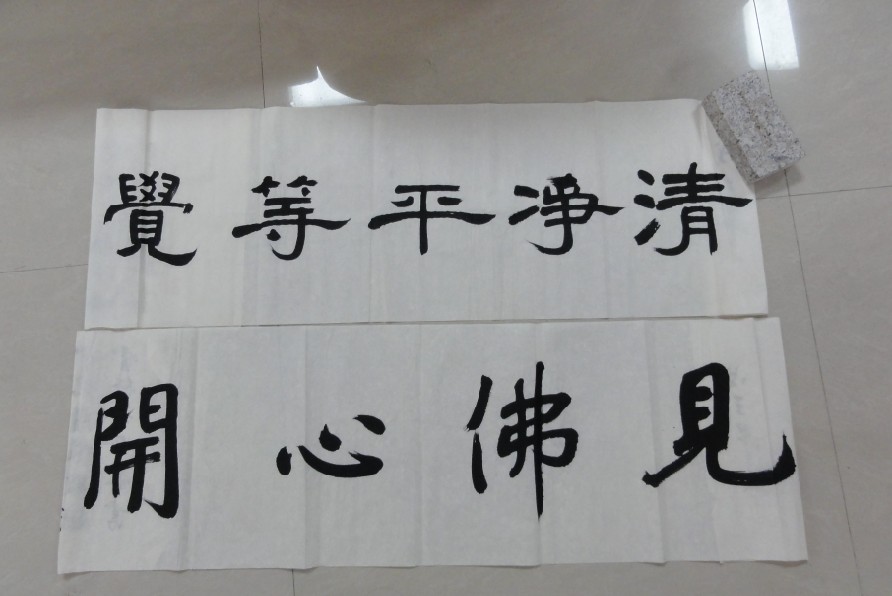 清淨平等覺
見佛心開